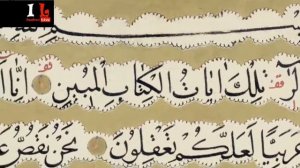 تِلْكَ اٰيَاتُ الْكِتَابِ الْمُبِينِ اِنَّٓا
رَبِيًّا لَعَلَّكُمْ تَعْقِلُونَ نَحْنُ نَقُصُّ